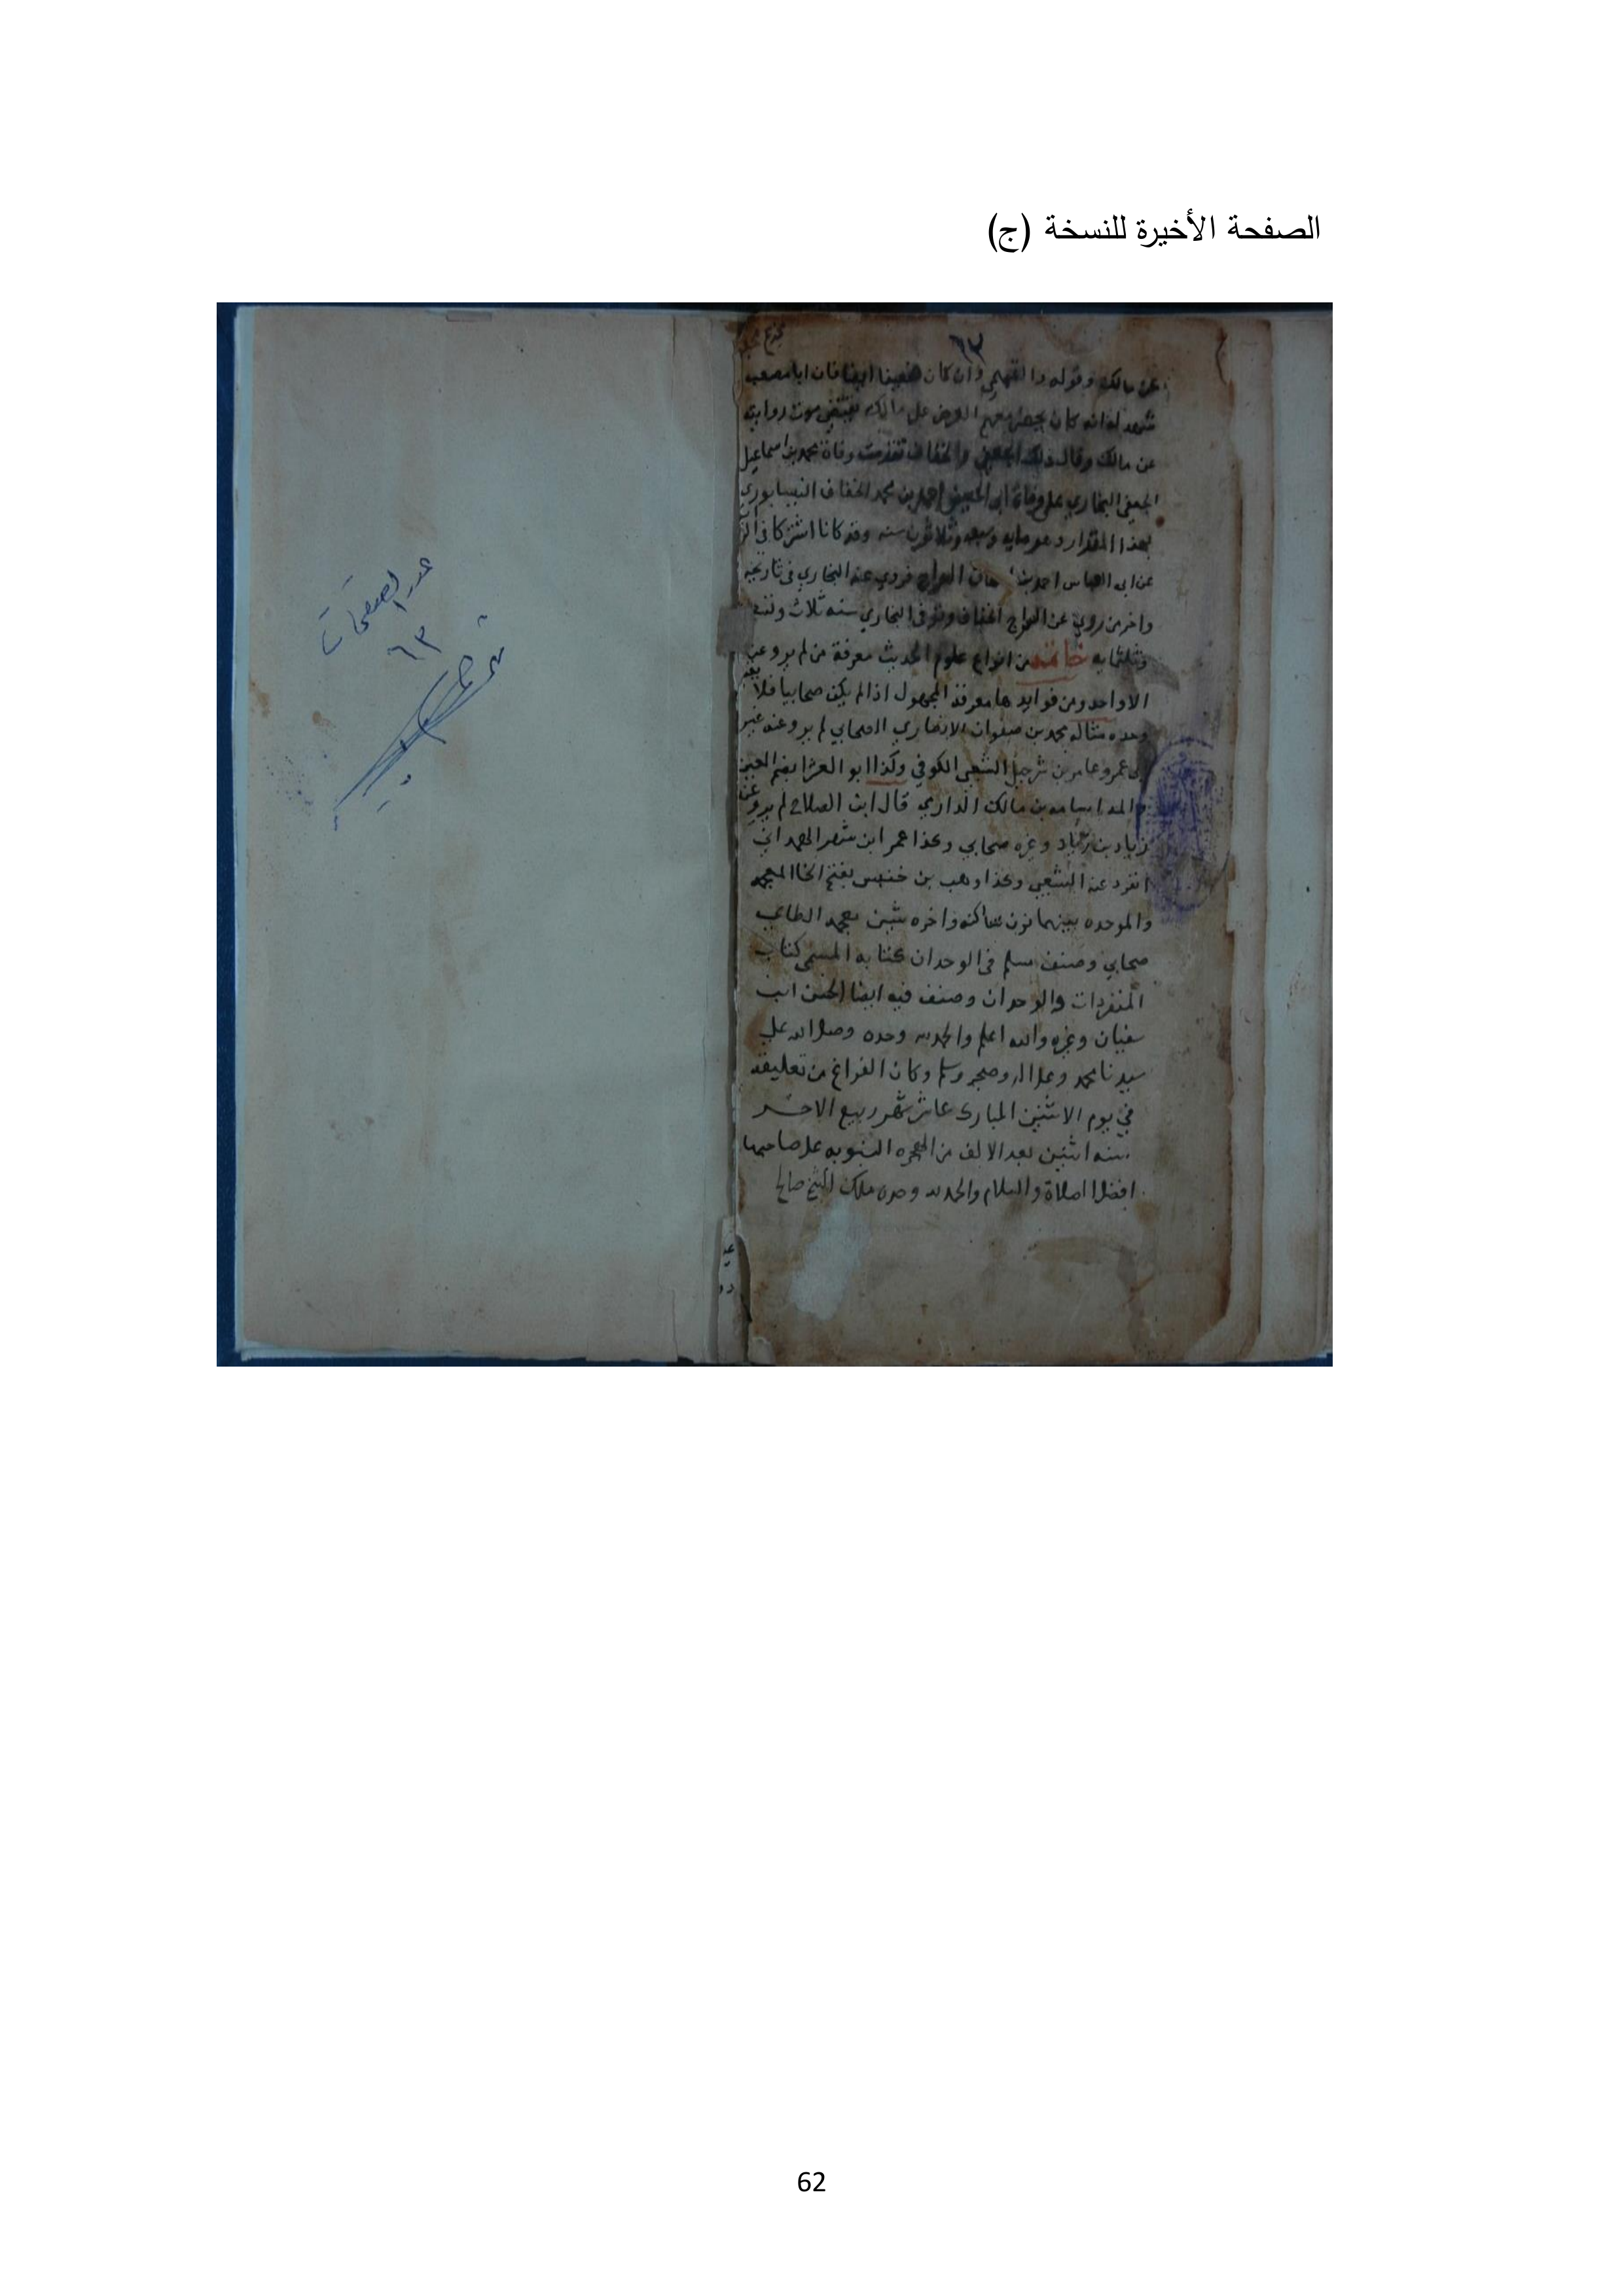 الصفحة الأخيرة للنسخة (ج)
٦٣
عن مالك وقوله وان كان ضعيفا ايضا فان ابا مصعب
شهد له انه كان يحضر معهم العرض على مالك
عن مالك وقال ذلك الجعفي والخفاف تقدمت وفاة محمد بن اسماعيل
الجعفي البخاري على وفاة ابي الحسين احمد بن محمد الخفاف النيسابوري
بهذا المقدار وهو مايه وسبعه وثلاثون سنه وقد كانا اشتركا في
عن ابي العباس احمد بن السراج فروي عنه البخاري في تاريخه
واخر من روي عن السراج الخفاف وتوفى البخاري سنه ثلاث
وثلثمايه خاتمه من انواع علوم الحديث معرفة من لم يرو عنه
الا واحد ومن فوايدها معرفة المجهول اذا لم يكن صحابيا فلا
وحده مثاله محمد بن صفوان الانصاري الصحابي لم يرو عنه غير
ابي عمرو عامر بن شرحبيل الشعبي الكوفي وكذا ابو العشرا بضم العين
والمد اسامه بن مالك الدارمي قال ابن الصلاح لم يرو عنه
وغيره صحابي وكذا عمر ابن شهر الهمداني
انفرد عنه الشعبي وكذا وهب بن خنبش بفتح الخا المعجمه
والموحده بينهما نون ساكنه واخره شين معجمه الطاى
صحابي وصنف مسلم في الوحدان كتابه المسمى كتاب
المنفردات والوحدان وصنف فيه ايضا الحسن ابن
سفيان وغيره والله اعلم والحمد لله وحده وصلى الله على
سيدنا محمد وعلى اله وصحبه وسلم وكان الفراغ من تعليقه
في يوم الاثنين المبارك عاشر شهر ربيع الاخر
سنه اثنين بعد الالف من الهجره النبويه على صاحبها
افضل الصلاة والسلام والحمد لله وحده ملك الشيخ صالح
عدد الصفحات
٦٣
62